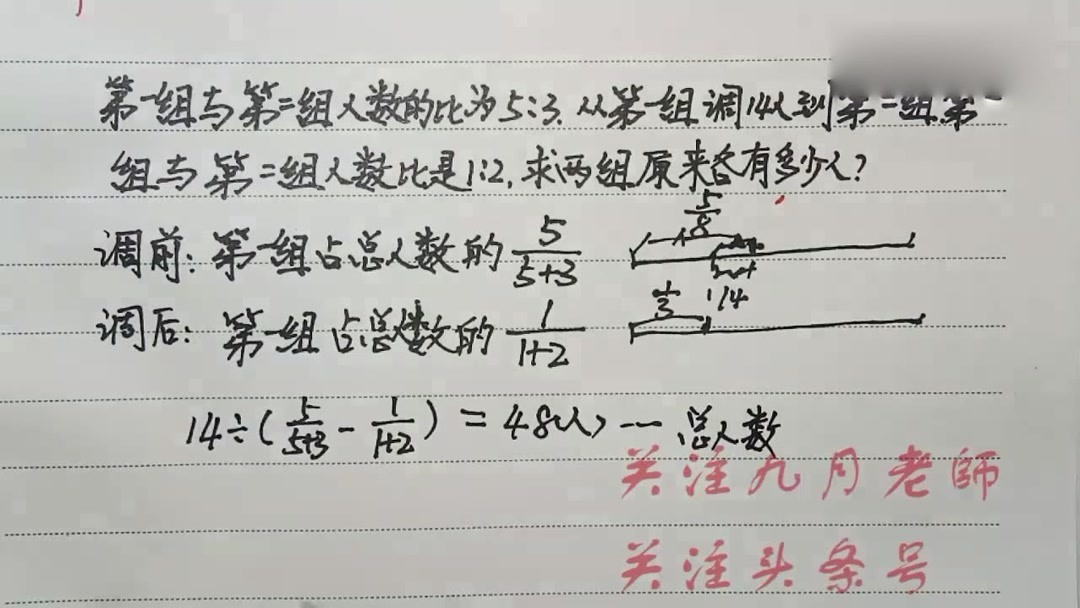 第一组与第二组人数的比为5:3.从第一组调14人到第二组.第一
组与第二组人数比是1:2,求两组原来各有多少人?
5/8
调前:第一组占总人数的 5/(5+3)
1/3 14
调后:第一组占总人数的 1/(1+2)
14÷(5/(5+3) - 1/(1+2)) = 48(人) --- 总人数
关注九月老師
关注头条号